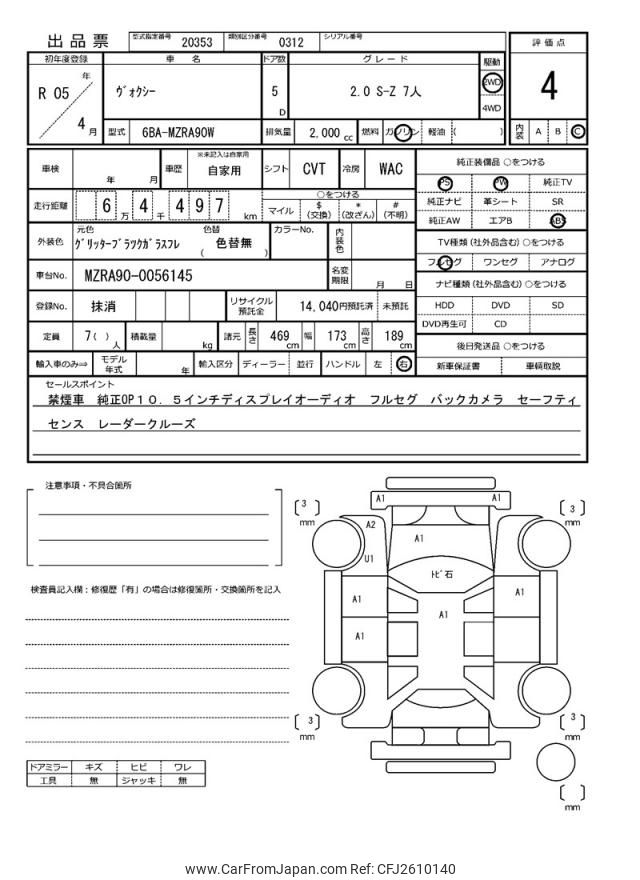 出品票 型式指定番号 20353 類別区分番号 0312 シリアル番号
評価点
4
初年度登録 車名 ドア数 グレード 駆動
R 05 年 4 月 ヴォクシー 5 D 2.0 S-Z 7人 2WD 4WD
型式 6BA-MZRA90W 排気量 2,000 cc 燃料 ガソリン 軽油 ( )
内装 A B C
車検 年 月 車歴 ※未記入は自家用 自家用 シフト CVT 冷房 WAC
走行距離 6 万 4 千 4 9 7 km ○をつける
マイル $ (交換) * (改ざん) # (不明)
外装色 元色 グリッターブラックガラスフレ 色替 ( 色替無 ) カラーNo. 内装色
車台No. MZRA90-0056145 名変期限 月 日
登録No. 抹消 リサイクル預託金 14,040円預託済 未預託
定員 7( ) 人 積載量 kg 諸元 長さ 469 cm 幅 173 cm 高さ 189 cm
輸入車のみ⇒ モデル年式 年 輸入区分 ディーラー 並行 ハンドル 左 右
純正装備品 ○をつける
PS PW 純正TV
純正ナビ 革シート SR
純正AW エアB ABS
TV種類 (社外品含む) ○をつける
フルセグ ワンセグ アナログ
ナビ種類 (社外品含む) ○をつける
HDD DVD SD
DVD再生可 CD
後日発送品 ○をつける
新車保証書 車輌取説
セールスポイント
禁煙車 純正OP10.5インチディスプレイオーディオ フルセグ バックカメラ セーフティ
センス レーダークルーズ
注意事項・不具合箇所
検査員記入欄：修復歴「有」の場合は修復箇所・交換箇所を記入
3 mm
A1 A1
3 mm
A2
A1
U1
トビ石
A1
A1
A1
A1
3 mm
3 mm
mm
ドアミラー キズ ヒビ ワレ
工具 無 ジャッキ 無
www.CarFromJapan.com Ref: CFJ2610140